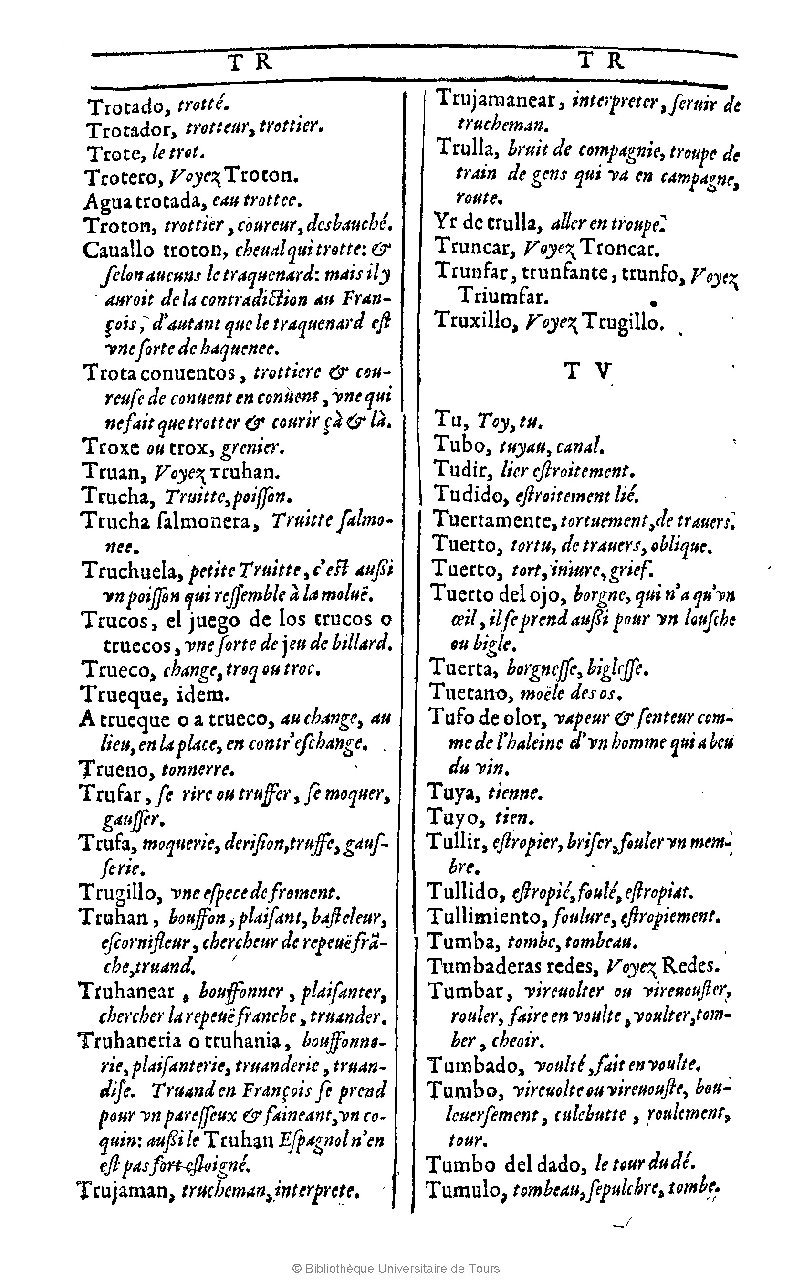 T R
Trotado, trotté.
Trotador, trotteur, trottier.
Trote, le trot.
Trotero, Voyez Troton.
Agua trotada, eau trottee.
Troton, trottier, coureur, desbauché.
Cauallo troton, cheual qui trotte: &
ſelon aucuns le traquenard: mais il y
auroit de la contradiction au Fran-
çois, d'autant que le traquenard eſt
vne ſorte de haquenee.
Trota conuentos, trottiere & cou-
reuſe de conuent en conuent, vne qui
ne fait que trotter & courir çà & là.
Troxe ou trox, grenier.
Truan, Voyez Truhan.
Trucha, Truitte, poiſſon.
Trucha ſalmonera, Truitte ſalmo-
nee.
Truchuela, petite Truitte, c'eſt auſſi
vn poiſſon qui reſſemble à la moluë.
Trucos, el juego de los trucos o
truecos, vne ſorte de jeu de billard.
Trueco, change, troq ou troc.
Trueque, idem.
A trueque o a trueco, au change, au
lieu, en la place, en contr'eſchange.
Trueno, tonnerre.
Trufar, ſe rire ou truffer, ſe moquer,
gauſſer.
Trufa, moquerie, deriſion, truffe, gauſ-
ſerie.
Trugillo, vne eſpece de froment.
Truhan, bouffon, plaiſant, baſteleur,
eſcornifleur, chercheur de repeuë frã-
che, truand.
Truhanear, bouffonner, plaiſanter,
chercher la repeuë franche, truander.
Truhaneria o truhania, bouffonne-
rie, plaiſanterie, truanderie, truan-
diſe. Truand en François ſe prend
pour vn pareſſeux & faineant, vn co-
quin: auſſi le Truhan Eſpagnol n'en
eſt pas fort eſloigné.
Trujaman, trucheman, interprete.
T R
Trujamanear, interpreter, ſeruir de
trucheman.
Trulla, bruit de compagnie, troupe de
train de gens qui va en campagne,
route.
Yr de trulla, aller en troupe.
Truncar, Voyez Troncar.
Trunfar, trunfante, trunfo, Voyez
Triumfar.
Truxillo, Voyez Trugillo.
T V
Tu, Toy, tu.
Tubo, tuyau, canal.
Tudir, lier eſtroitement.
Tudido, eſtroitement lié.
Tuertamente, tortuement, de trauers.
Tuerto, tortu, de trauers, oblique.
Tuerto, tort, iniure, grief.
Tuerto del ojo, borgne, qui n'a qu'vn
œil, il ſe prend auſſi pour vn louſche
ou bigle.
Tuerta, borgneſſe, bigleſſe.
Tuetano, moële des os.
Tufo de olor, vapeur & ſenteur com-
me de l'haleine d'vn homme qui a beu
du vin.
Tuya, tienne.
Tuyo, tien.
Tullir, eſtropier, briſer, fouler vn mem-
bre.
Tullido, eſtropié, foulé, eſtropiat.
Tullimiento, foulure, eſtropiement.
Tumba, tombe, tombeau.
Tumbaderas redes, Voyez Redes.
Tumbar, vireuolter ou vireuouſter,
rouler, faire en voulte, voulter, tom-
ber, cheoir.
Tumbado, voulté, fait en voulte.
Tumbo, vireuolte ou vireuouſte, bou-
leuerſement, culebutte, roulement,
tour.
Tumbo del dado, le tour du dé.
Tumulo, tombeau, ſepulchre, tombe.
© Bibliothèque Universitaire de Tours